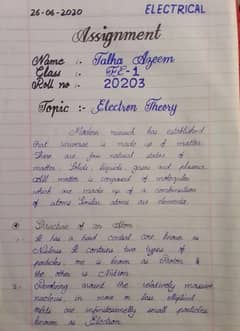 26-06-2020 ELECTRICAL
Assignment
Name :- Talha Azeem
Class :- FE-1
Roll no :- 20203
Topic :- Electron Theory
Modern research has established
that universe is made up of matter.
There are four natural states of
matter. Solids, liquids, gases and plasma
All matter is composed of molecules
which are made up of a combination
of atoms. Similar atoms are elements.
Structure of an Atom
1. It has a hard central core known as
Nucleus. It contains two types of
particles, one is known as Proton &
the other is Neutron.
2. Revolving around the relatively massive
nucleus, in more or less elliptical
orbits are infinitesimally small particles
known as Electron.